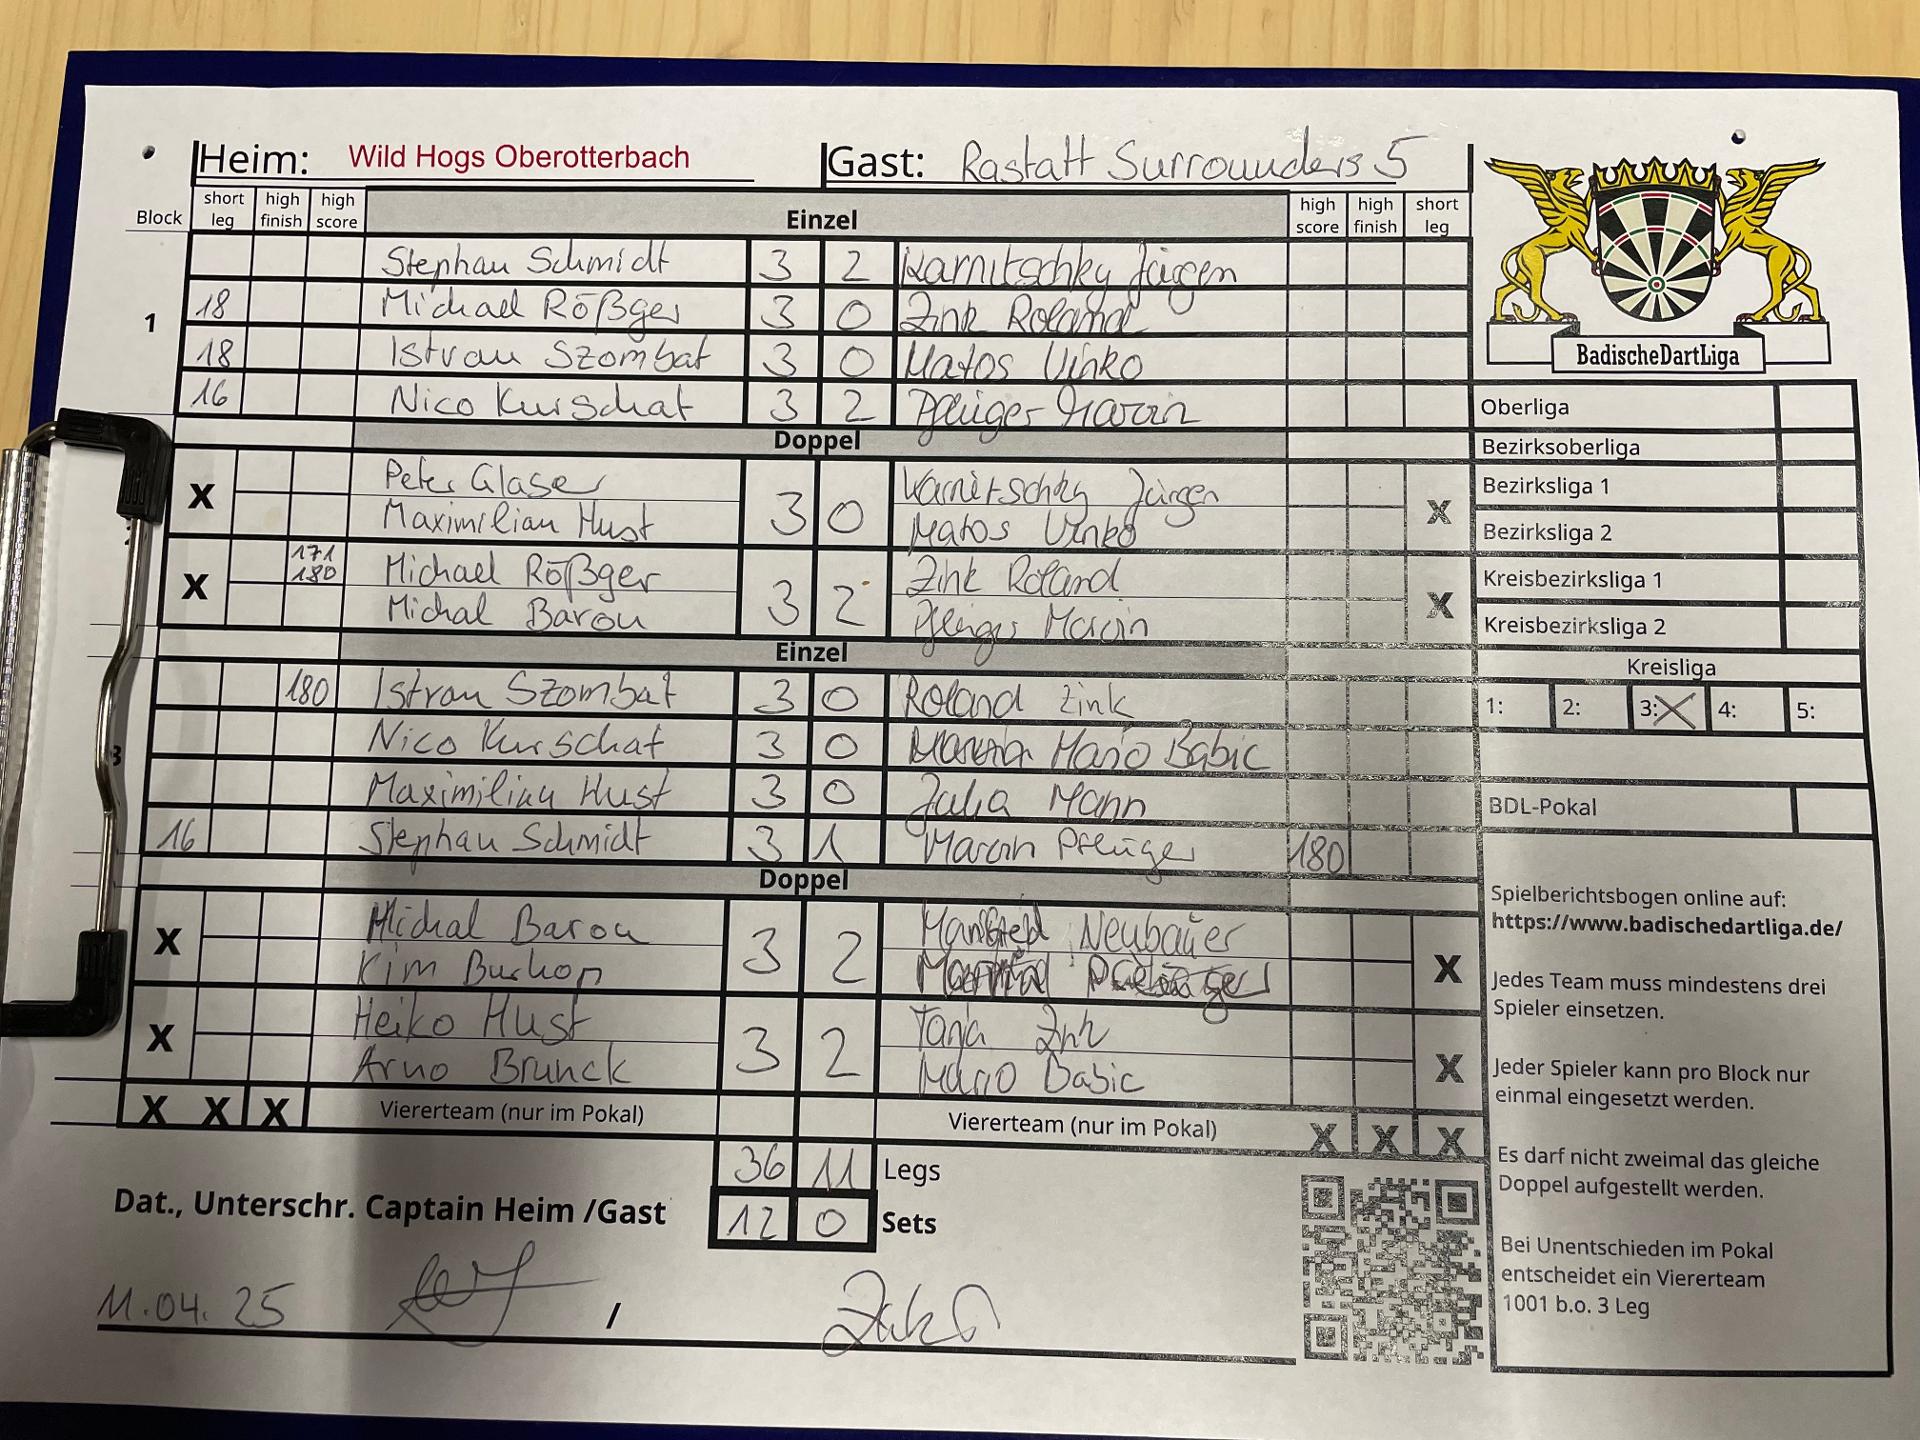 Heim: Wild Hogs Oberotterbach Gast: Rastatt Surrounders 5
Block short leg high finish high score Einzel high score high finish short leg
Stephan Schmidt 3 2 Karnitschky Jürgen
1 18 Michael Rößger 3 0 Zink Roland
18 Istvan Szombat 3 0 Matos Vinko
16 Nico Kurschat 3 2 Pflüger Marvin
Doppel
X Peter Glaser 3 0 Karnitschky Jürgen X
Maximilian Hust Matos Vinko
X 171 180 Michael Rößger 3 2 Zink Roland X
Michal Barou Pflüger Marvin
Einzel
180 Istvan Szombat 3 0 Roland Zink
3 Nico Kurschat 3 0 Mario Babic
Maximilian Hust 3 0 Julia Mann
16 Stephan Schmidt 3 1 Marvin Pflüger 180
Doppel
X Michal Barou 3 2 Manfred Neubauer X
Kim Burkon
X Heiko Hust 3 2 Tanja Zink X
Arno Brunck Mario Babic
X X X Viererteam (nur im Pokal) Viererteam (nur im Pokal) X X X
36 11 Legs
Dat., Unterschr. Captain Heim /Gast 12 0 Sets
11.04.25 /
BadischeDartLiga
Oberliga
Bezirksoberliga
Bezirksliga 1
Bezirksliga 2
Kreisbezirksliga 1
Kreisbezirksliga 2
Kreisliga
1: 2: 3: X 4: 5:
BDL-Pokal
Spielberichtsbogen online auf:
https://www.badischedartliga.de/
Jedes Team muss mindestens drei
Spieler einsetzen.
Jeder Spieler kann pro Block nur
einmal eingesetzt werden.
Es darf nicht zweimal das gleiche
Doppel aufgestellt werden.
Bei Unentschieden im Pokal
entscheidet ein Viererteam
1001 b.o. 3 Leg